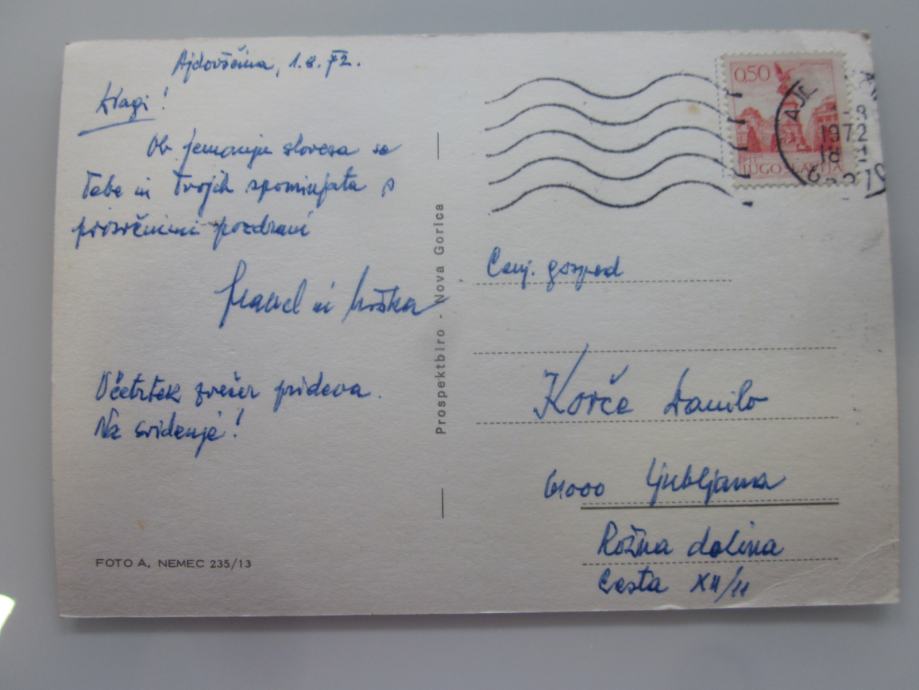 Ajdovščina, 1.8.72.
Dragi!
Ob jemanju slovesa se
Tebe in Tvojih spominjata s
prisrčnimi pozdravi
in
Včetrtek zvečer prideva.
Na svidenje!
FOTO A, NEMEC 235/13
Prospektbiro - Nova Gorica
0,50
JUGOSLAVIJA
1972
Cenj. gospod
Korče Danilo
61000 Ljubljana
Rožna dolina
Cesta XII/11